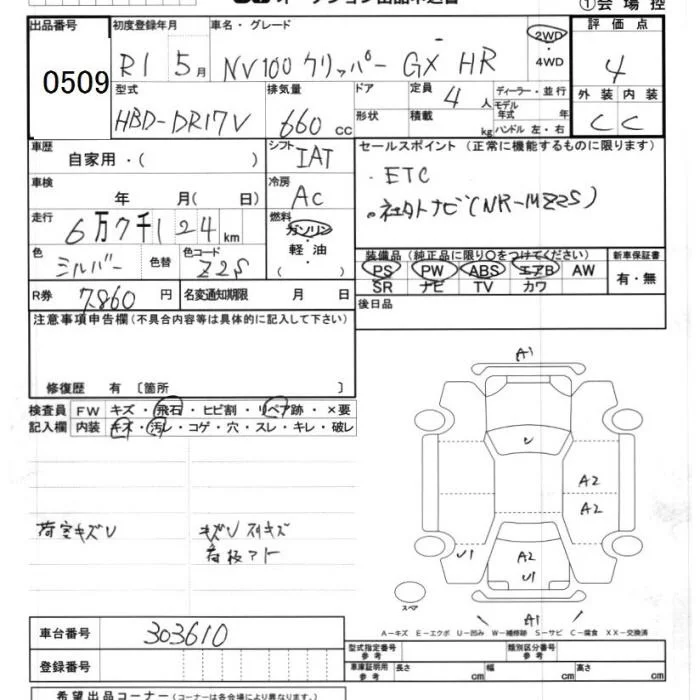 ①会場控
出品番号 初度登録年月 車名・グレード 評価点
0509 R1 5月 NV100 クリッパー GX HR 2WD ・ 4WD 4
型式 排気量 ドア 定員 ディーラー・並行 外装 内装
HBD-DR17V 660cc 形状 4人 積載 kg モデル年式 年 ハンドル 左・右 C C
車歴 シフト セールスポイント(正常に機能するものに限ります)
自家用・( ) IAT ・ETC
車検 冷房
年 月( 日) AC 社外ナビ(NR-MZ25)
走行 燃料
6万7千124km ガソリン
色 色替 色コード 軽・油 装備品(純正品に限り○をつけてください) 新車保証書
シルバー Z2S ( ) PS PW ABS エアB AW 有・無
SR ナビ TV カワ
R券 7,860円 名変通知期限 月 日 後日品
注意事項申告欄(不具合内容等は具体的に記入して下さい)
修復歴 有 〔箇所 〕
検査員 FW キズ・飛石・ヒビ割・リペア跡・×要
記入欄 内装 キズ・汚レ・コゲ・穴・スレ・キレ・破レ
A1
U
A2
A2
荷室キズU キズU スリキズ
U1 A2
U1
スペア
A1
A－キズ E－エクボ U－凹み W－補修跡 S－サビ C－腐食 XX－交換済
車台番号 303610
型式指定番号 参考 類別区分番号 参考
登録番号 車庫証明用 参考 長さ cm 幅 cm 高さ cm
希望出品コーナー(コーナーは各会場により異なります。)